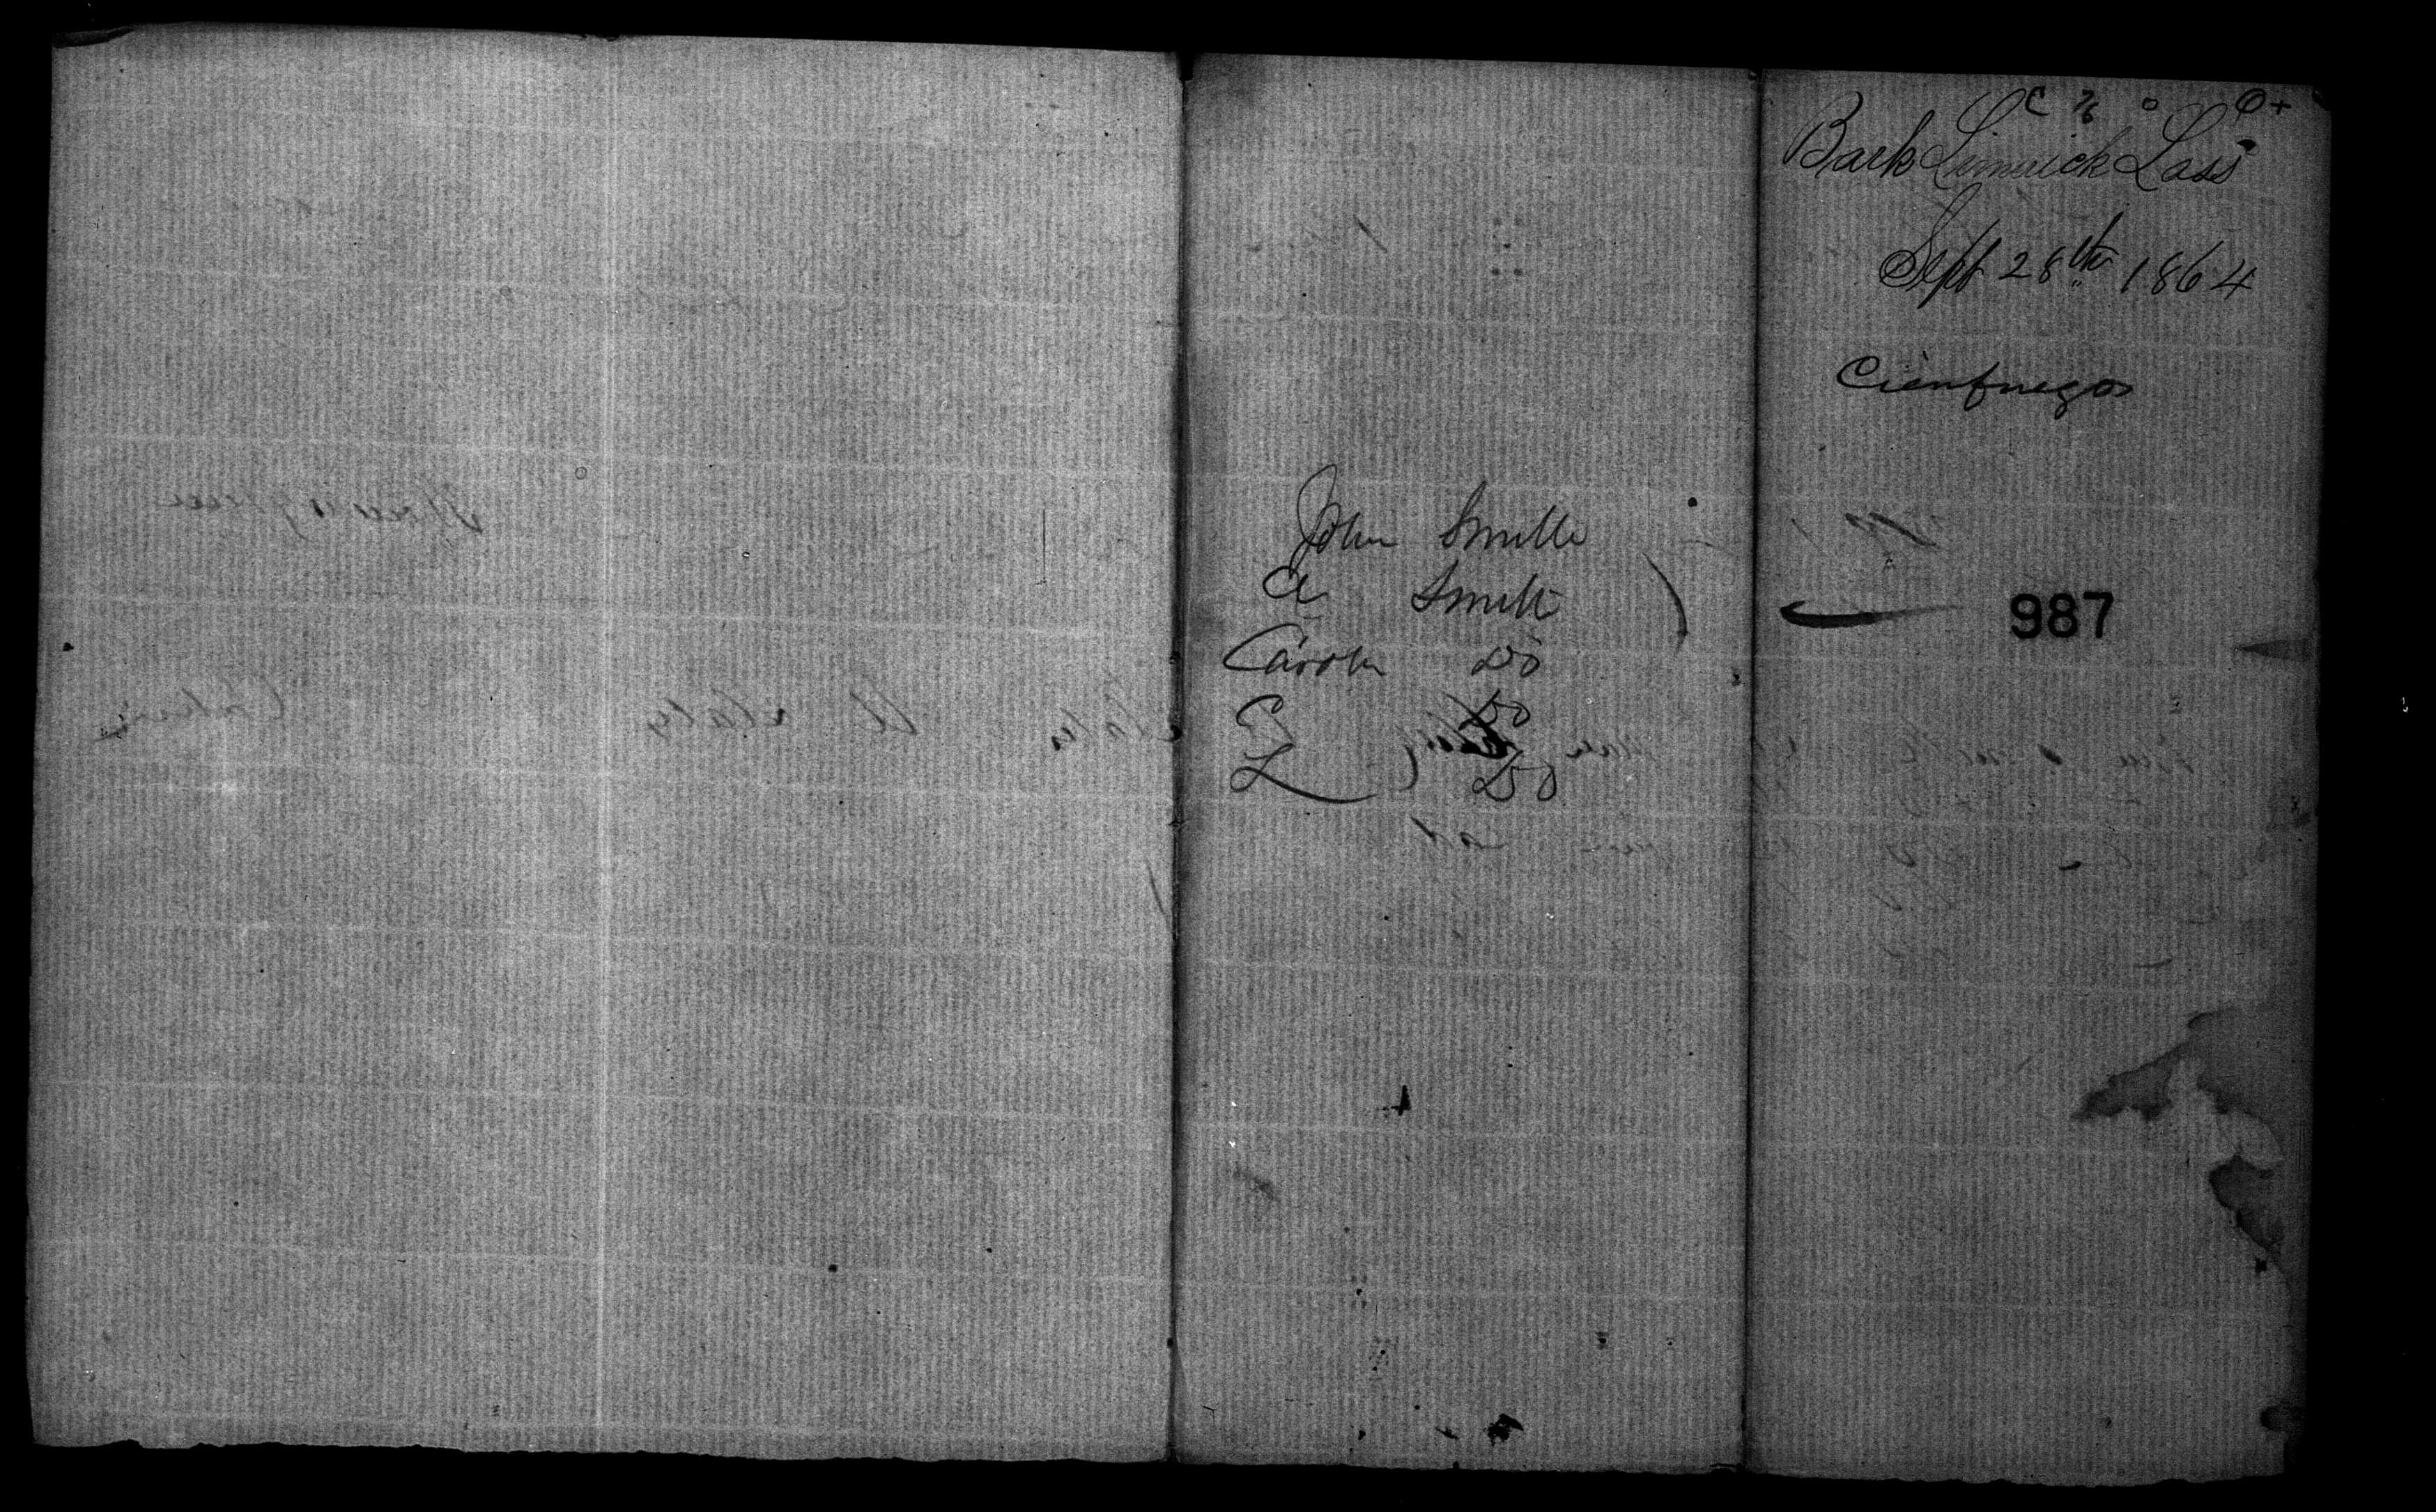 Bark Limerick Lass
Sept 28th 1864
Cienfuegos
987
John Smith
A Smith
Carolin Do
E Do
L Do